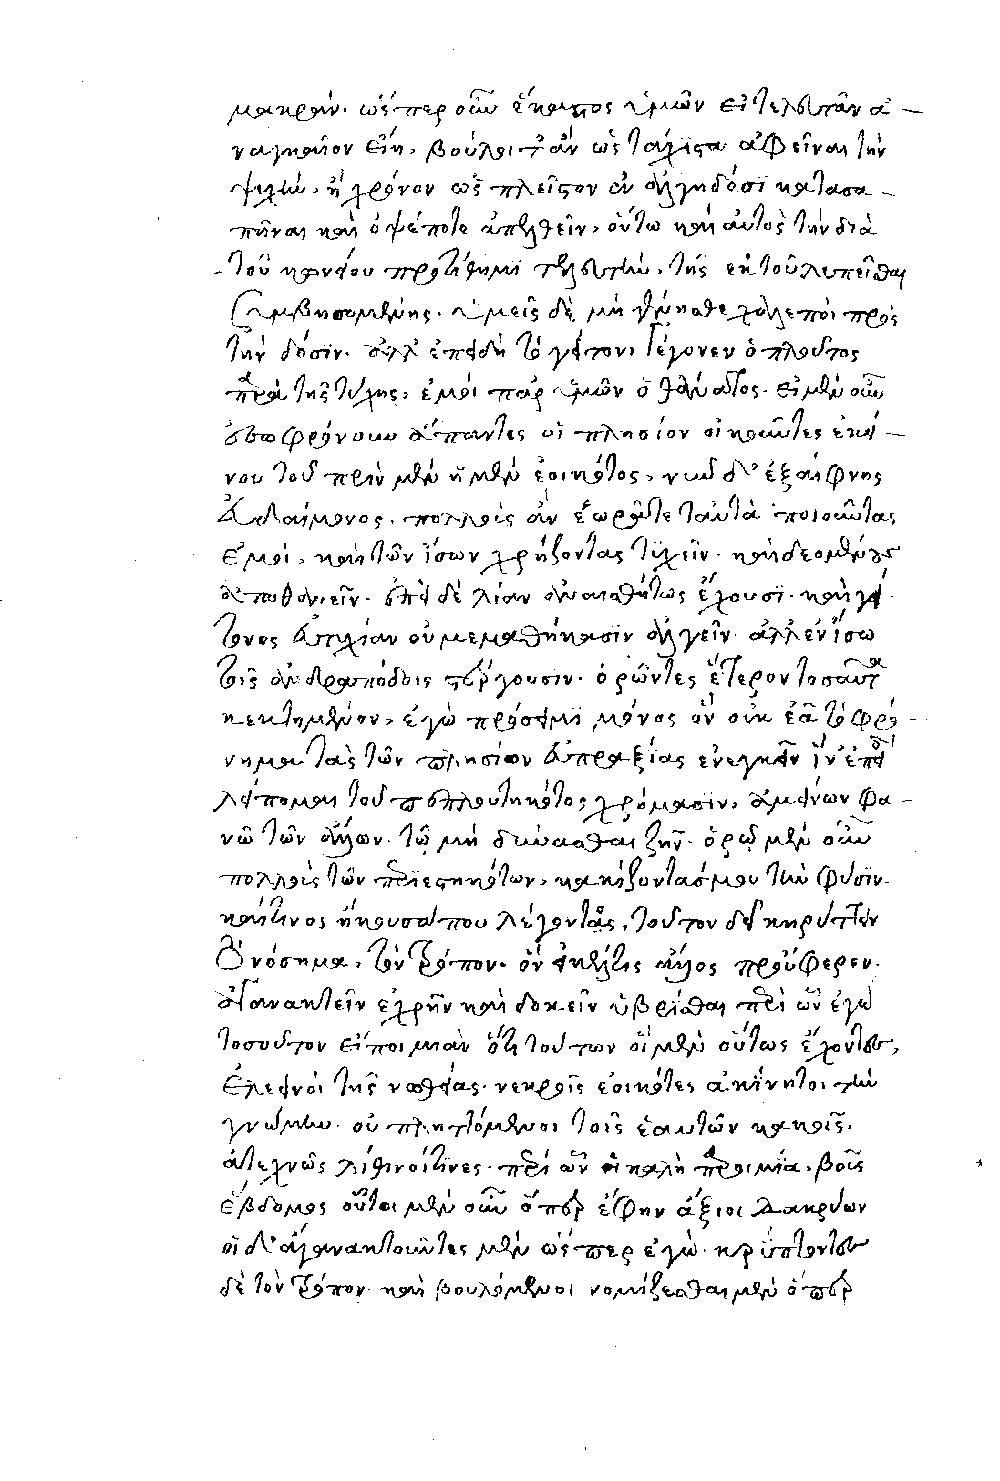 μακρὰν. ὥσπερ οὖν ἕκαστος ὑμῶν εἰ τελευτᾶν ἀ-
ναγκαῖον εἴη, βούλοιτ' ἂν ὡς τάχιστα ἀφεῖναι τὴν
ψυχὴν, ἢ χρόνον ὡς πλεῖστον ἐν ἀλγηδόσι κατασα-
πῆναι καὶ ὀψέποτε ἀπελθεῖν, οὕτω καὶ αὐτὸς τὴν διὰ
τοῦ κωνείου προτίθημι τελευτὴν, τῆς ἐκ τοῦ λυπεῖσθαι
συμβησομένης. ὑμεῖς δὲ μὴ γίνησθε χαλεποὶ πρὸς
τὴν δόσιν. ἀλλ' ἐπειδὴ τῷ γείτονι γέγονεν ὁ πλοῦτος
παρὰ τῆς τύχης, ἐμοὶ παρ' ὑμῶν ὁ θάνατος. εἰ μὲν οὖν
ἐσωφρόνουν ἅπαντες οἱ πλησίον οἰκοῦντες ἐκεί-
νου τοῦ πρὶν μὲν ἡμῖν ἐοικότος, νῦν δ' ἐξαίφνης
εὐδαίμονος, πολλοὺς ἂν ἑωρᾶτε ταὐτὰ ποιοῦντας
ἐμοὶ, καὶ τῶν ἴσων χρῄζοντας τυχεῖν. καὶ δεομένους
ἀποθανεῖν. ἐπεὶ δὲ λίαν ἀναισθήτως ἔχουσι. καὶ γεί
τονος εὐτυχίαν οὐ μεμαθήκασιν ἀλγεῖν. ἀλλ' ἐν ἴσῳ
τοῖς ἀνδραπόδοις στέργουσιν. ὁρῶντες ἕτερον τοσαῦτα
κεκτημένον, ἐγὼ πρόσειμι μόνος ὃν οὐκ ἐᾷ τὸ φρό-
νημα τὰς τῶν πλησίον εὐπραξίας ἐνεγκεῖν ἵν' ἐπειδὴ
λείπομαι τοῦ πεπλουτηκότος χρήμασιν, ἀμείνων φα-
νῶ τῶν ἄλλων. τῷ μὴ δύνασθαι ζῆν. ὁρῶ μὲν οὖν
πολλοὺς τῶν περιεστηκότων, κακίζοντάς μου τὴν φύσιν.
καί τινος ἤκουσά που λέγοντος, τοῦτον δεῖ κηρύττειν
τὸ νόσημα, τὸν τρόπον. ὃν εἴ τις ἄλλος προὔφερεν.
ἀγανακτεῖν ἐχρῆν καὶ δοκεῖν ὑβρίσθαι περὶ ὧν ἐγὼ
τοσοῦτον εἴποιμι ἂν ὅτι τούτων οἱ μὲν οὕτως ἔχοντες,
ἐλεεινοὶ τῆς νωθείας. νεκροῖς ἐοικότες ἀκίνητοι τὴν
γνώμην. οὐ πληττόμενοι τοῖς ἑαυτῶν κακοῖς.
ἀτεχνῶς λίθινοί τινες. περὶ ὧν ἡ καλὴ παροιμία, βοῦς
ἕβδομος οὗτοι μὲν οὖν ὅπερ ἔφην ἄξιοι δακρύων
οἱ δ' ἀγανακτοῦντες μὲν ὥσπερ ἐγὼ. κρύπτοντες
δὲ τὸν τρόπον. καὶ βουλόμενοι νομίζεσθαι μὲν ὅπερ